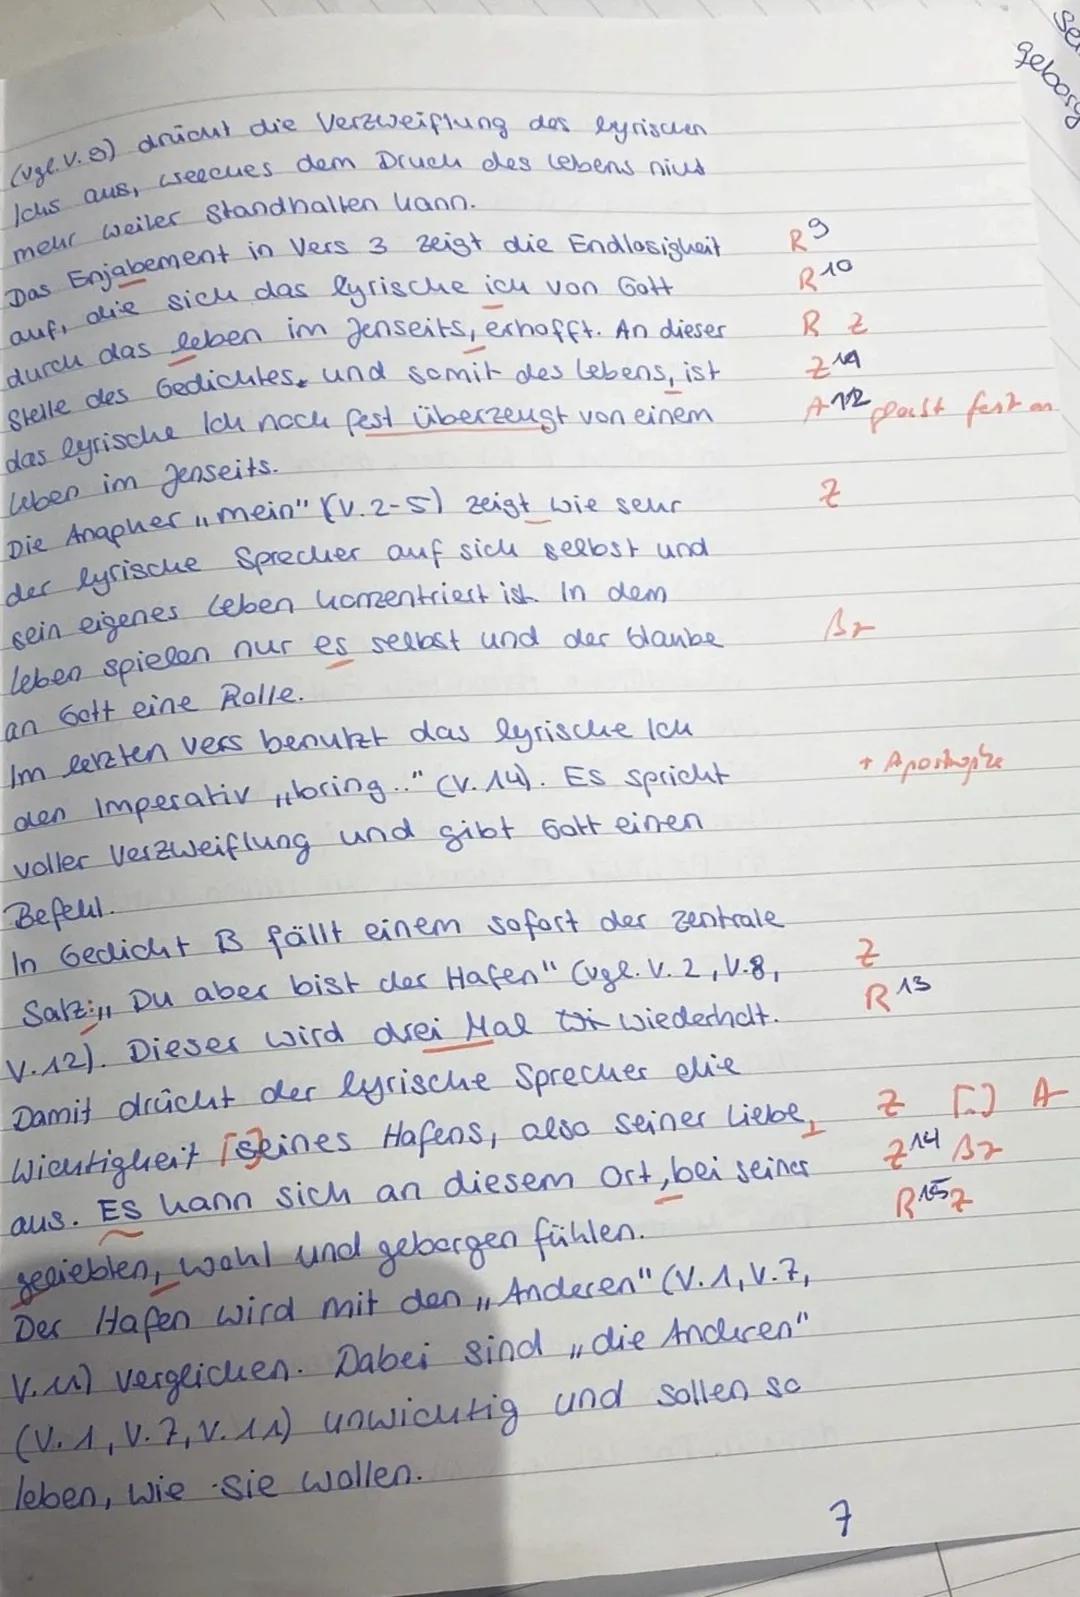 (vgl. V. 8) drückt die Verzweiflung des lyrischen
Ichs aus, welches dem Druck des Lebens nicht
mehr weiter Standhalten kann.
Das Enjabement in Vers 3 zeigt die Endlosigkeit R 9
auf, die sich das lyrische ich von Gott R 10
durch das leben im Jenseits, erhofft. An dieser R Z
Stelle des Gedichtes, und somit des Lebens, ist Z 11
das lyrische Ich noch fest überzeugt von einem A 12 glaubt fest an
Leben im Jenseits.
Die Anapher „mein" (V. 2-5) zeigt wie sehr Z
der lyrische Sprecher auf sich selbst und
sein eigenes Leben konzentriert ist. In dem
Leben spielen nur es selbst und der Glaube Bz
an Gott eine Rolle.
Im letzten Vers benutzt das lyrische Ich
den Imperativ „bring.." (V. 14). Es spricht + Apostrophe
voller Verzweiflung und gibt Gott einen
Befehl.
In Gedicht B fällt einem sofort der zentrale
Satz: „Du aber bist der Hafen" (vgl. V. 2, V. 8, Z
V. 12). Dieser wird drei Mal wiederholt. R 13
Damit drückt der lyrische Sprecher die
Wichtigkeit [seines Hafens, also seiner Liebe, Z [..] A
aus. Es kann sich an diesem Ort, bei seiner Z 14 Bz
geliebten, wohl und geborgen fühlen. R 15 Z
Der Hafen wird mit den „Anderen" (V. 1, V. 7,
V. 11) verglichen. Dabei sind „die Anderen"
(V. 1, V. 7, V. 11) unwichtig und sollen so
leben, wie sie wollen.
7